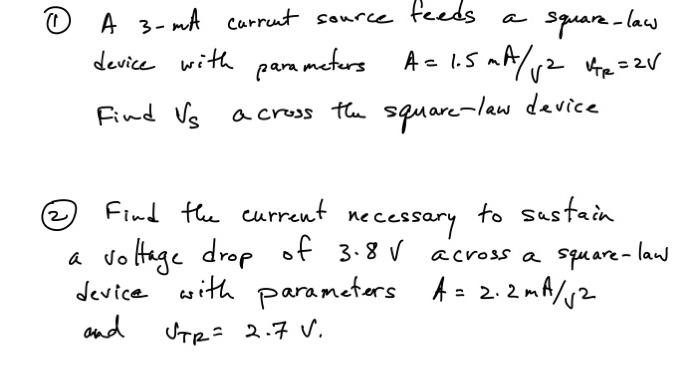 ① A 3-mA current source feeds a square-law
device with parameters A = 1.5 mA/V2 VTR = 2V
Find VS across the square-law device
② Find the current necessary to sustain
a voltage drop of 3.8 V across a square-law
device with parameters A = 2.2 mA/V2
and VTR = 2.7 V.